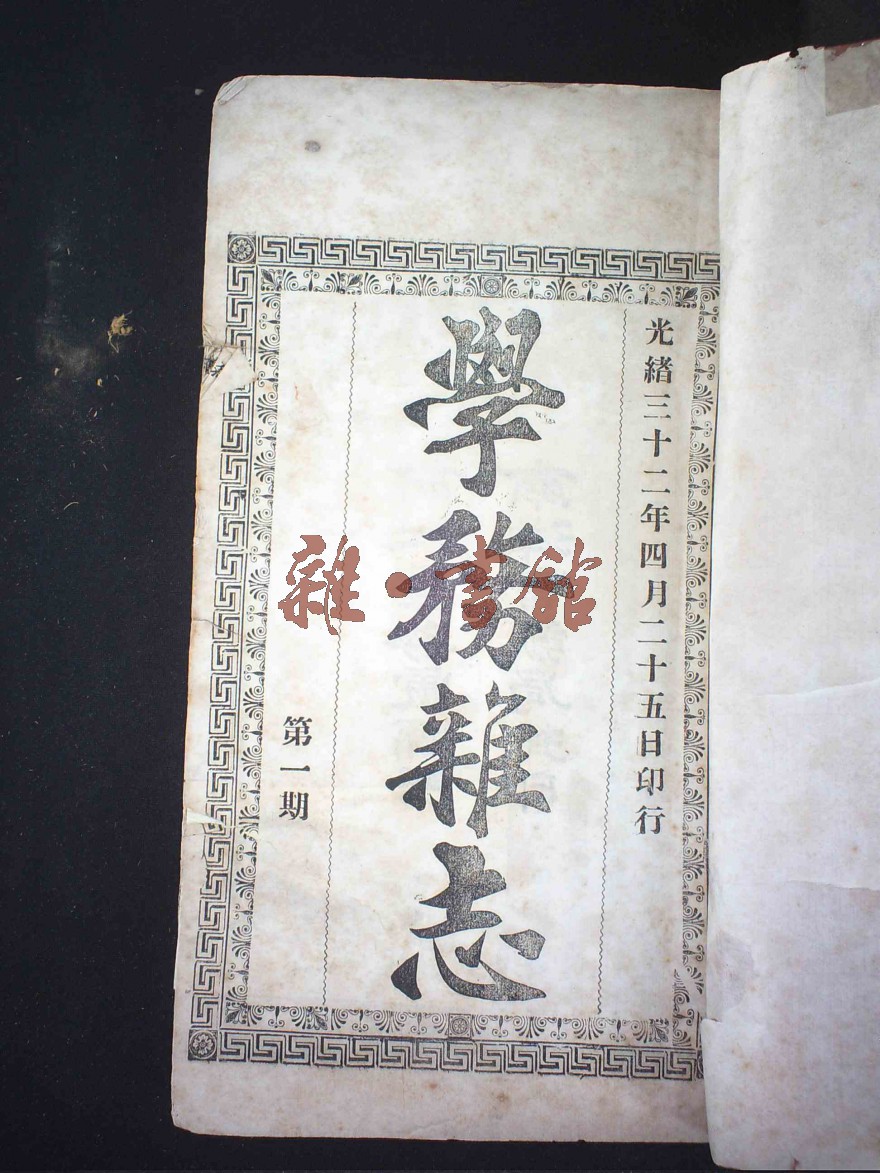 光緒三十二年四月二十五日印行
學務雜志
第一期
雜·書館